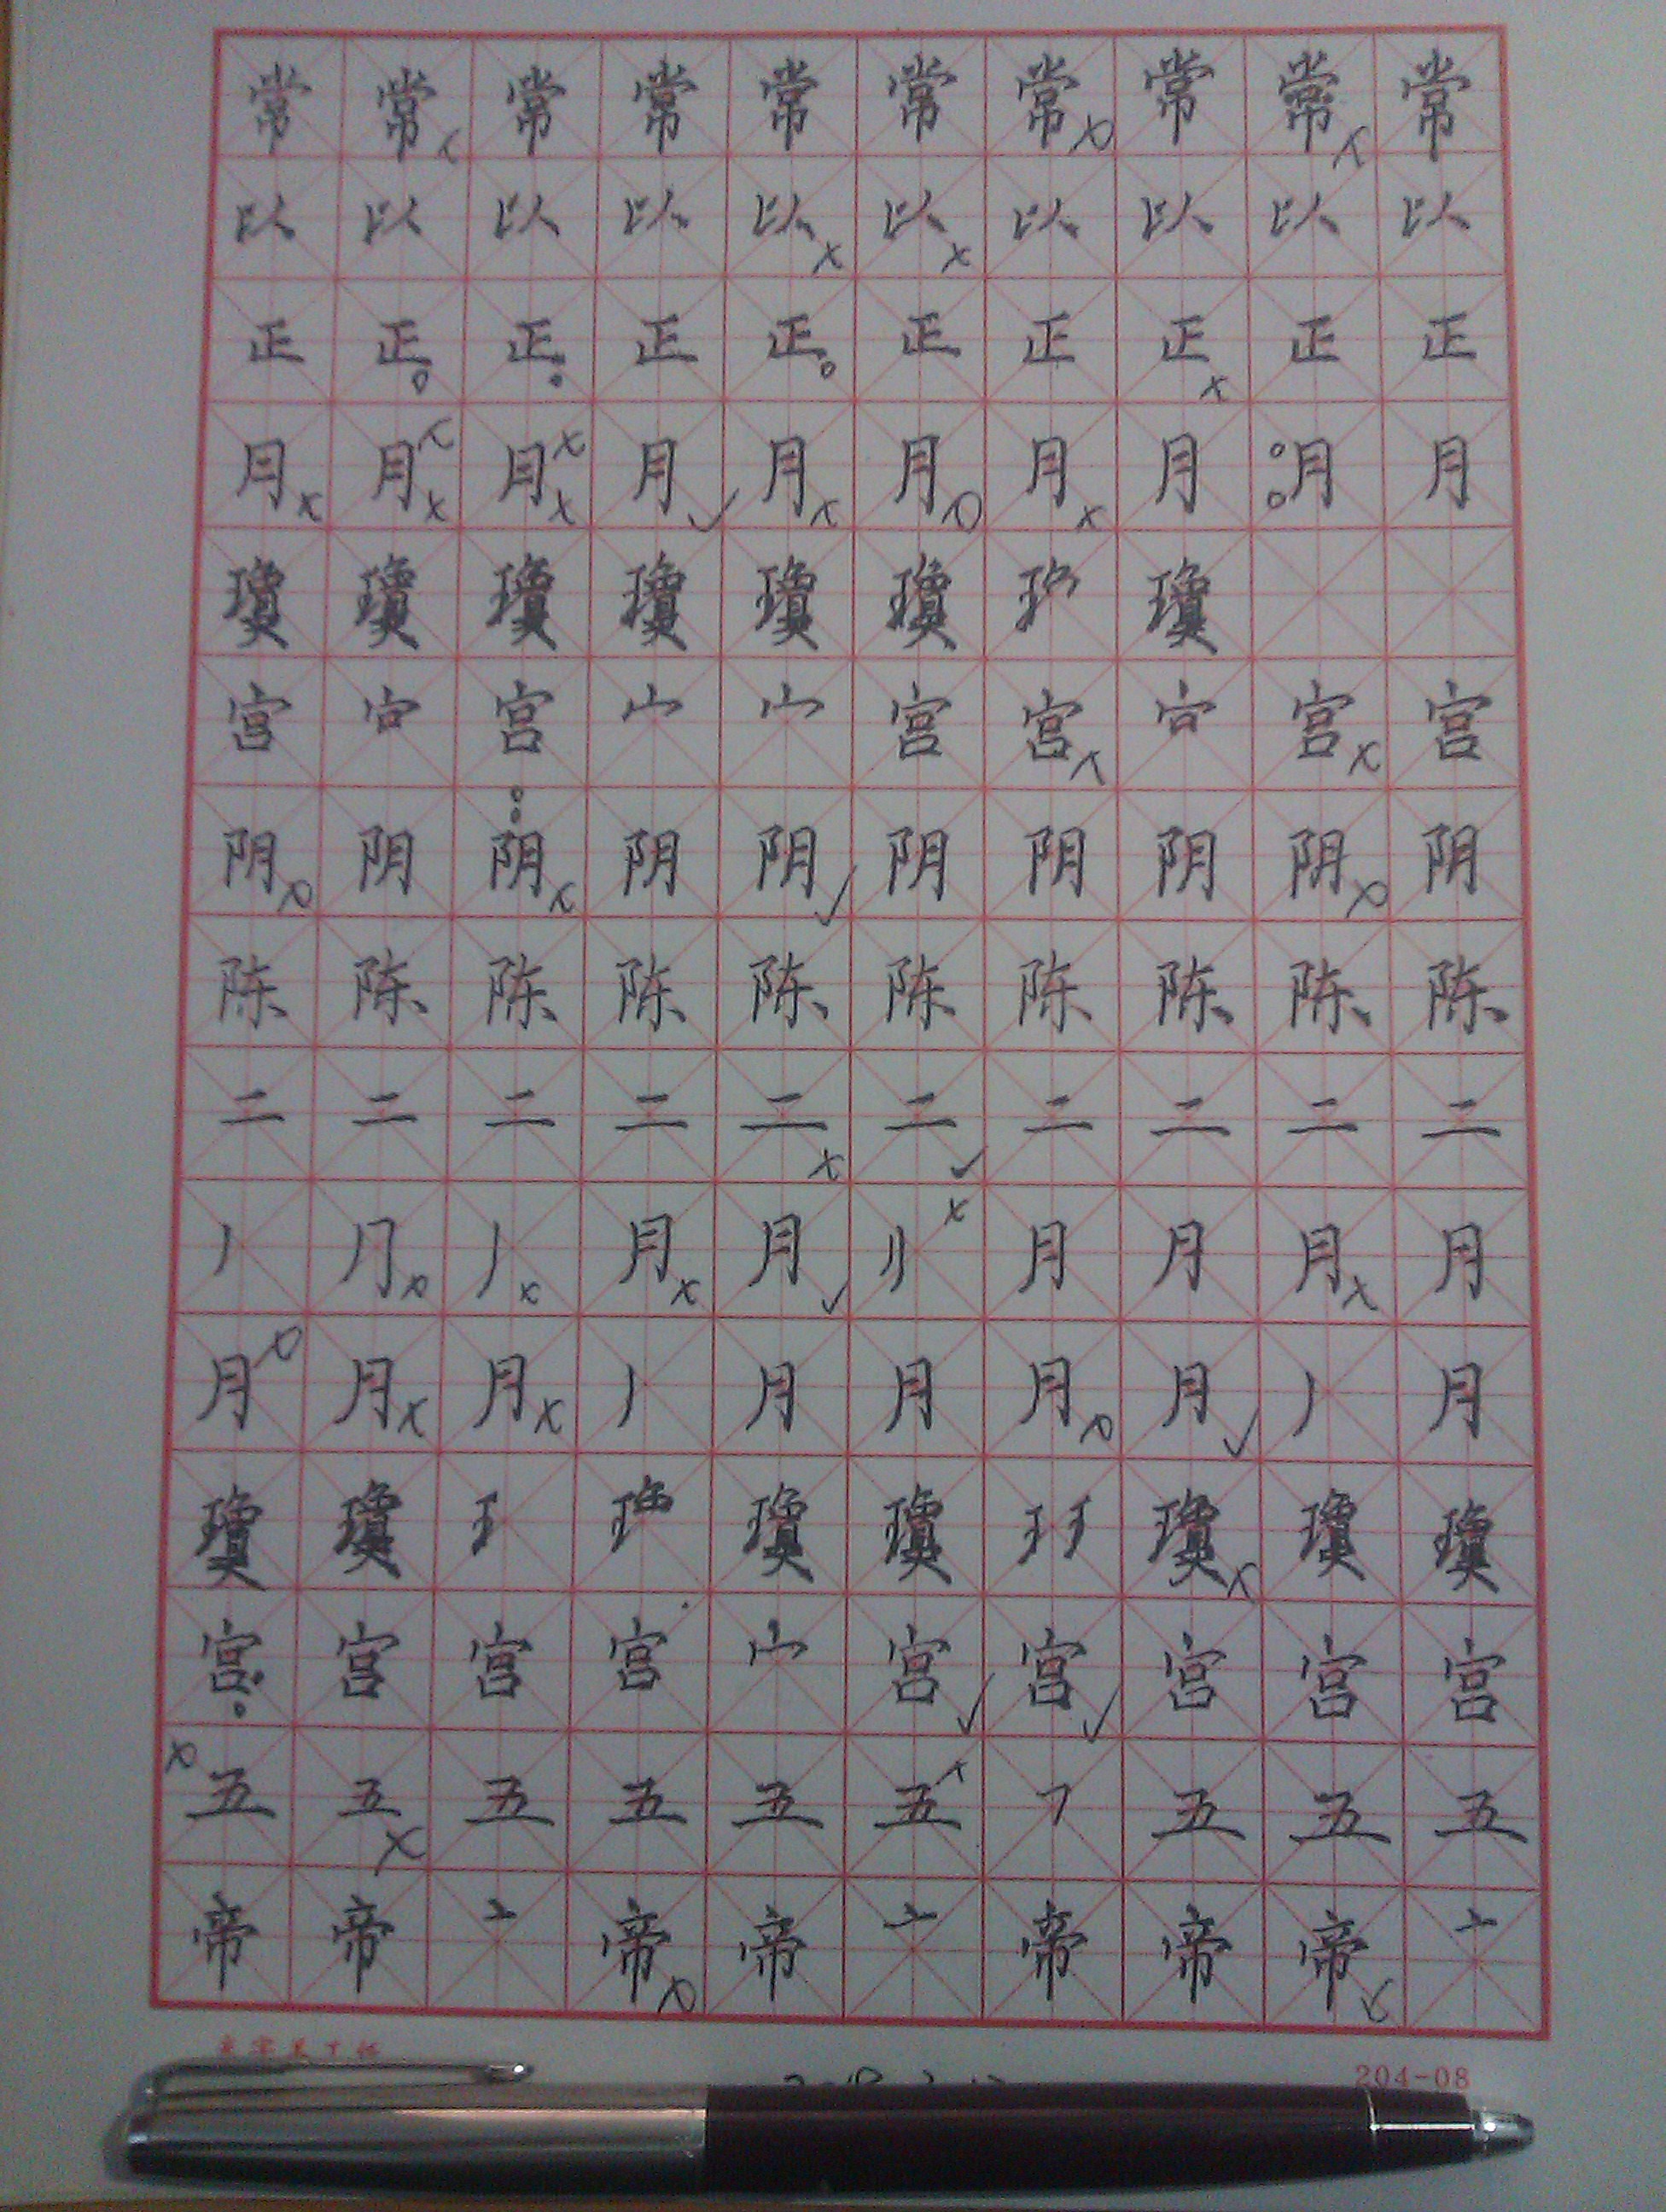 常常常常常常常常常常
以以以以以以以以以以
正正正正正正正正正正
月月月月月月月月月月
瓊瓊瓊瓊瓊瓊瓊
宫宫宫宫宫宫
阴阴阴阴阴阴阴阴阴阴
陈陈陈陈陈陈陈陈陈陈
二二二二二二二二二二
月月月月月月
月月月月月月月月
瓊瓊瓊瓊瓊瓊瓊
宫宫宫宫宫宫宫宫宫
五五五五五五五五五
帝帝帝帝帝帝帝
204-08